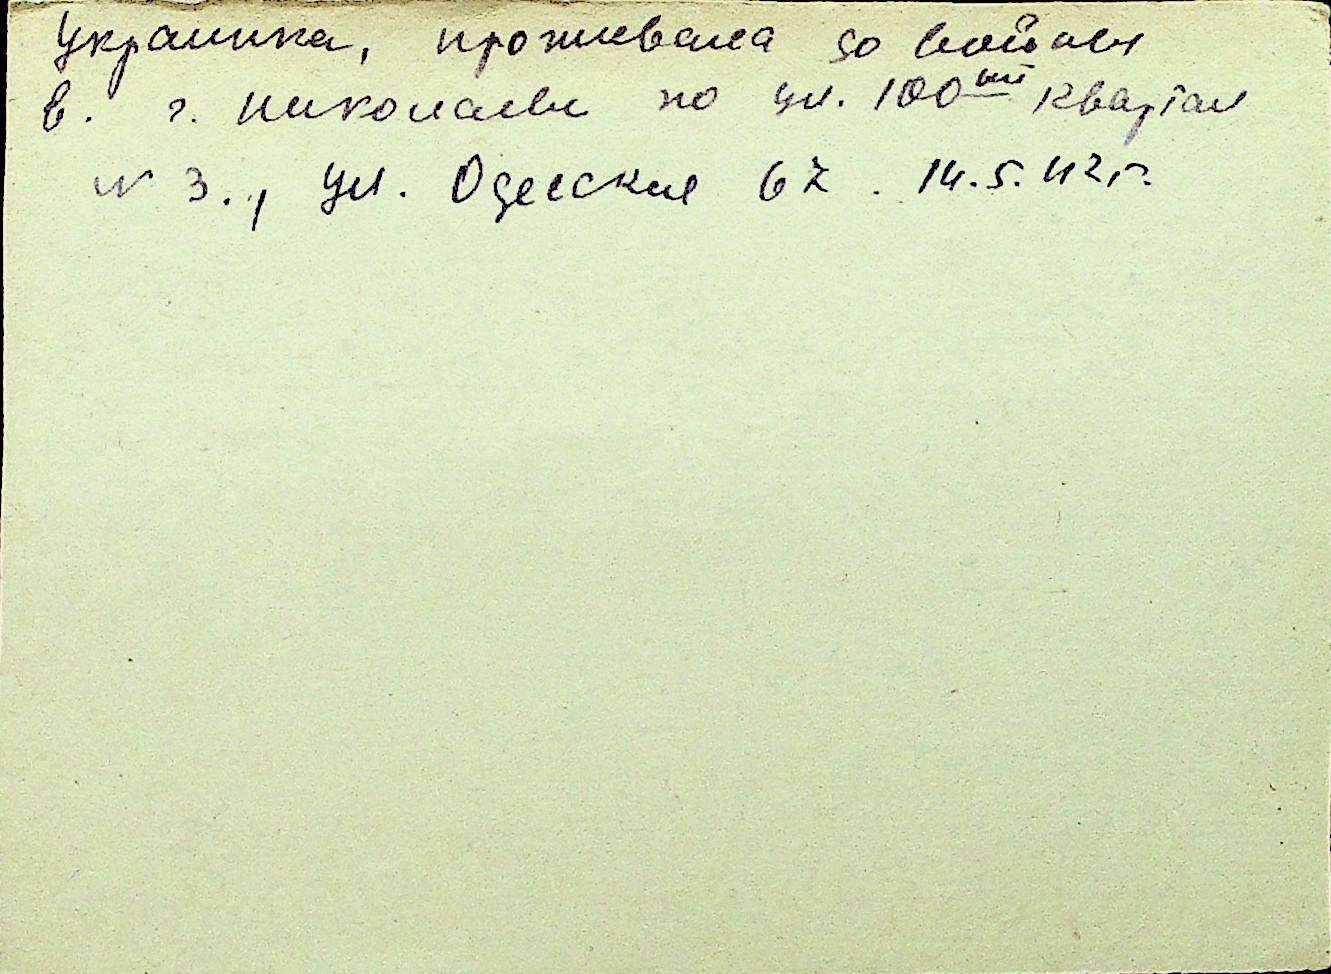 Украинка, проживала до войны
в. г. Николаеве по ул. 100ый квартал
№ 3., ул. Одесская 67. 14.5.42г.